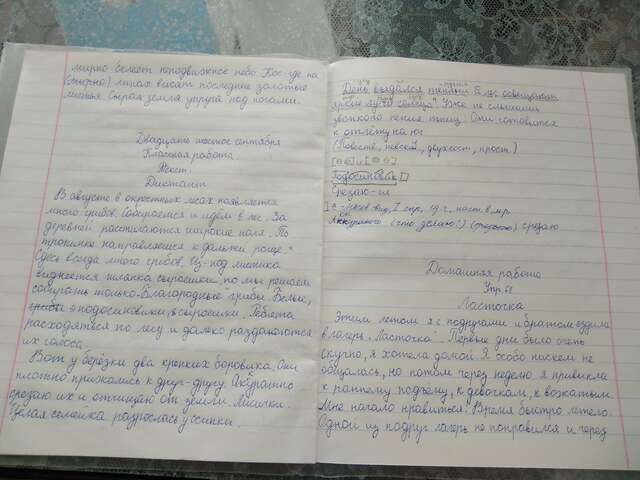 мирно белеет неподвижное небо. Кое-где на
липах висят последние золотые
листья. Сырая земля упруга под ногами.
Двадцать шестое сентября
Классная работа.
Текст.
Диктант
В августе в окрестных лесах появляется
много грибов. Собираемся и идём в лес. За
деревней расстилаются широкие поля. По
тропинке направляемся к дальней роще.
Здесь всегда много грибов. Из-под листика
виднеется шляпка сыроежки, но мы решаем
собирать только "Благородные" грибы. Белые,
грибы подосиновики, сыроежки. Ребята
расходятся по лесу и далеко раздаются
их голоса.
Вот у берёзки два крепких боровика. Они
плотно прижались к друг-другу. Аккуратно
срезаю их и отчищаю от земли. Лисички.
Целая семейка разрослась у осинки.
День выдался тёплый. Ёлки освещают
яркие лучи солнца. Уже не слышим
звонкого пения птиц. Они готовятся
к отлёту на юг.
(Повеств., невоскл., двухсост., прост.)
Подосиновик
Срезаю-гл
Аккуратного (что делаю?) срезаю
Домашняя работа
Упр.
Ласточка
Этим летом я с подругами и братом ездила
в лагерь „Ласточка". Первые дни было очень
скучно, я хотела домой. Я особо ни с кем не
общалась, но потом через неделю я привыкла
к раннему подъёму, к девочкам, к вожатым.
Мне начало нравиться! Время быстро летело.
Одной из подруг лагерь не понравился и через